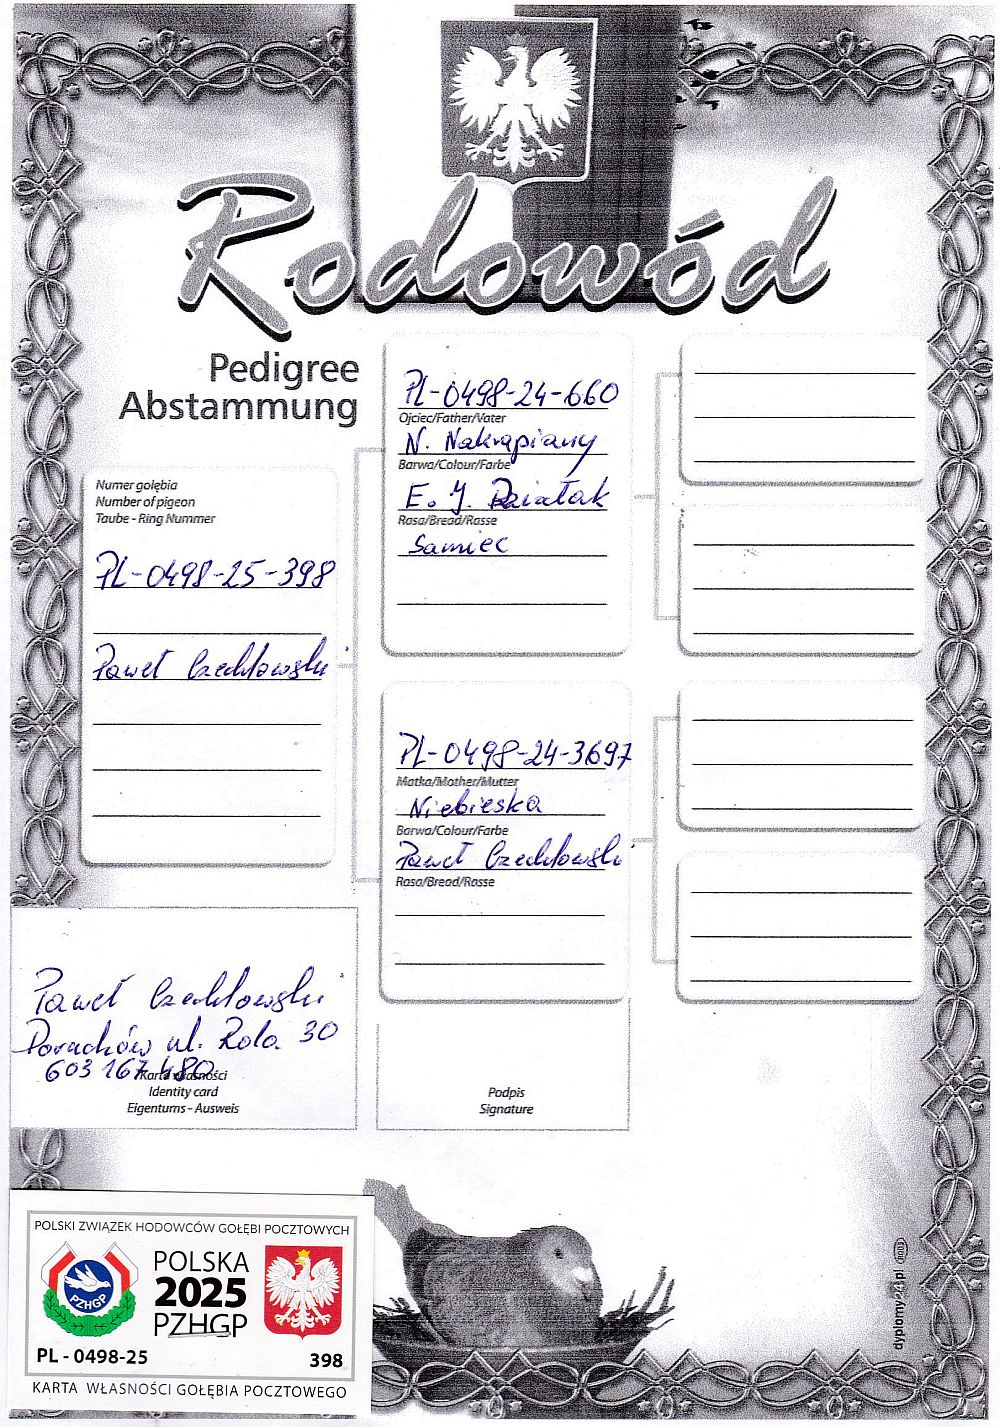 Rodowód
Pedigree
Abstammung
Numer gołębia
Number of pigeon
Taube - Ring Nummer
PL-0498-25-398
Paweł Czechłowski
PL-0498-24-660
Ojciec/Father/Vater
N. Nakrapiany
Barwa/Colour/Farbe
E. J. Działak
Rasa/Bread/Rasse
Samiec
PL-0498-24-3697
Matka/Mother/Mutter
Niebieska
Barwa/Colour/Farbe
Paweł Czechłowski
Rasa/Bread/Rasse
Paweł Czechłowski
ul. Rola 30
603 167 480
Karta własności
Identity card
Eigentums - Ausweis
Podpis
Signature
POLSKI ZWIĄZEK HODOWCÓW GOŁĘBI POCZTOWYCH
PZHGP
POLSKA
2025
PZHGP
PL - 0498-25
398
KARTA WŁASNOŚCI GOŁĘBIA POCZTOWEGO